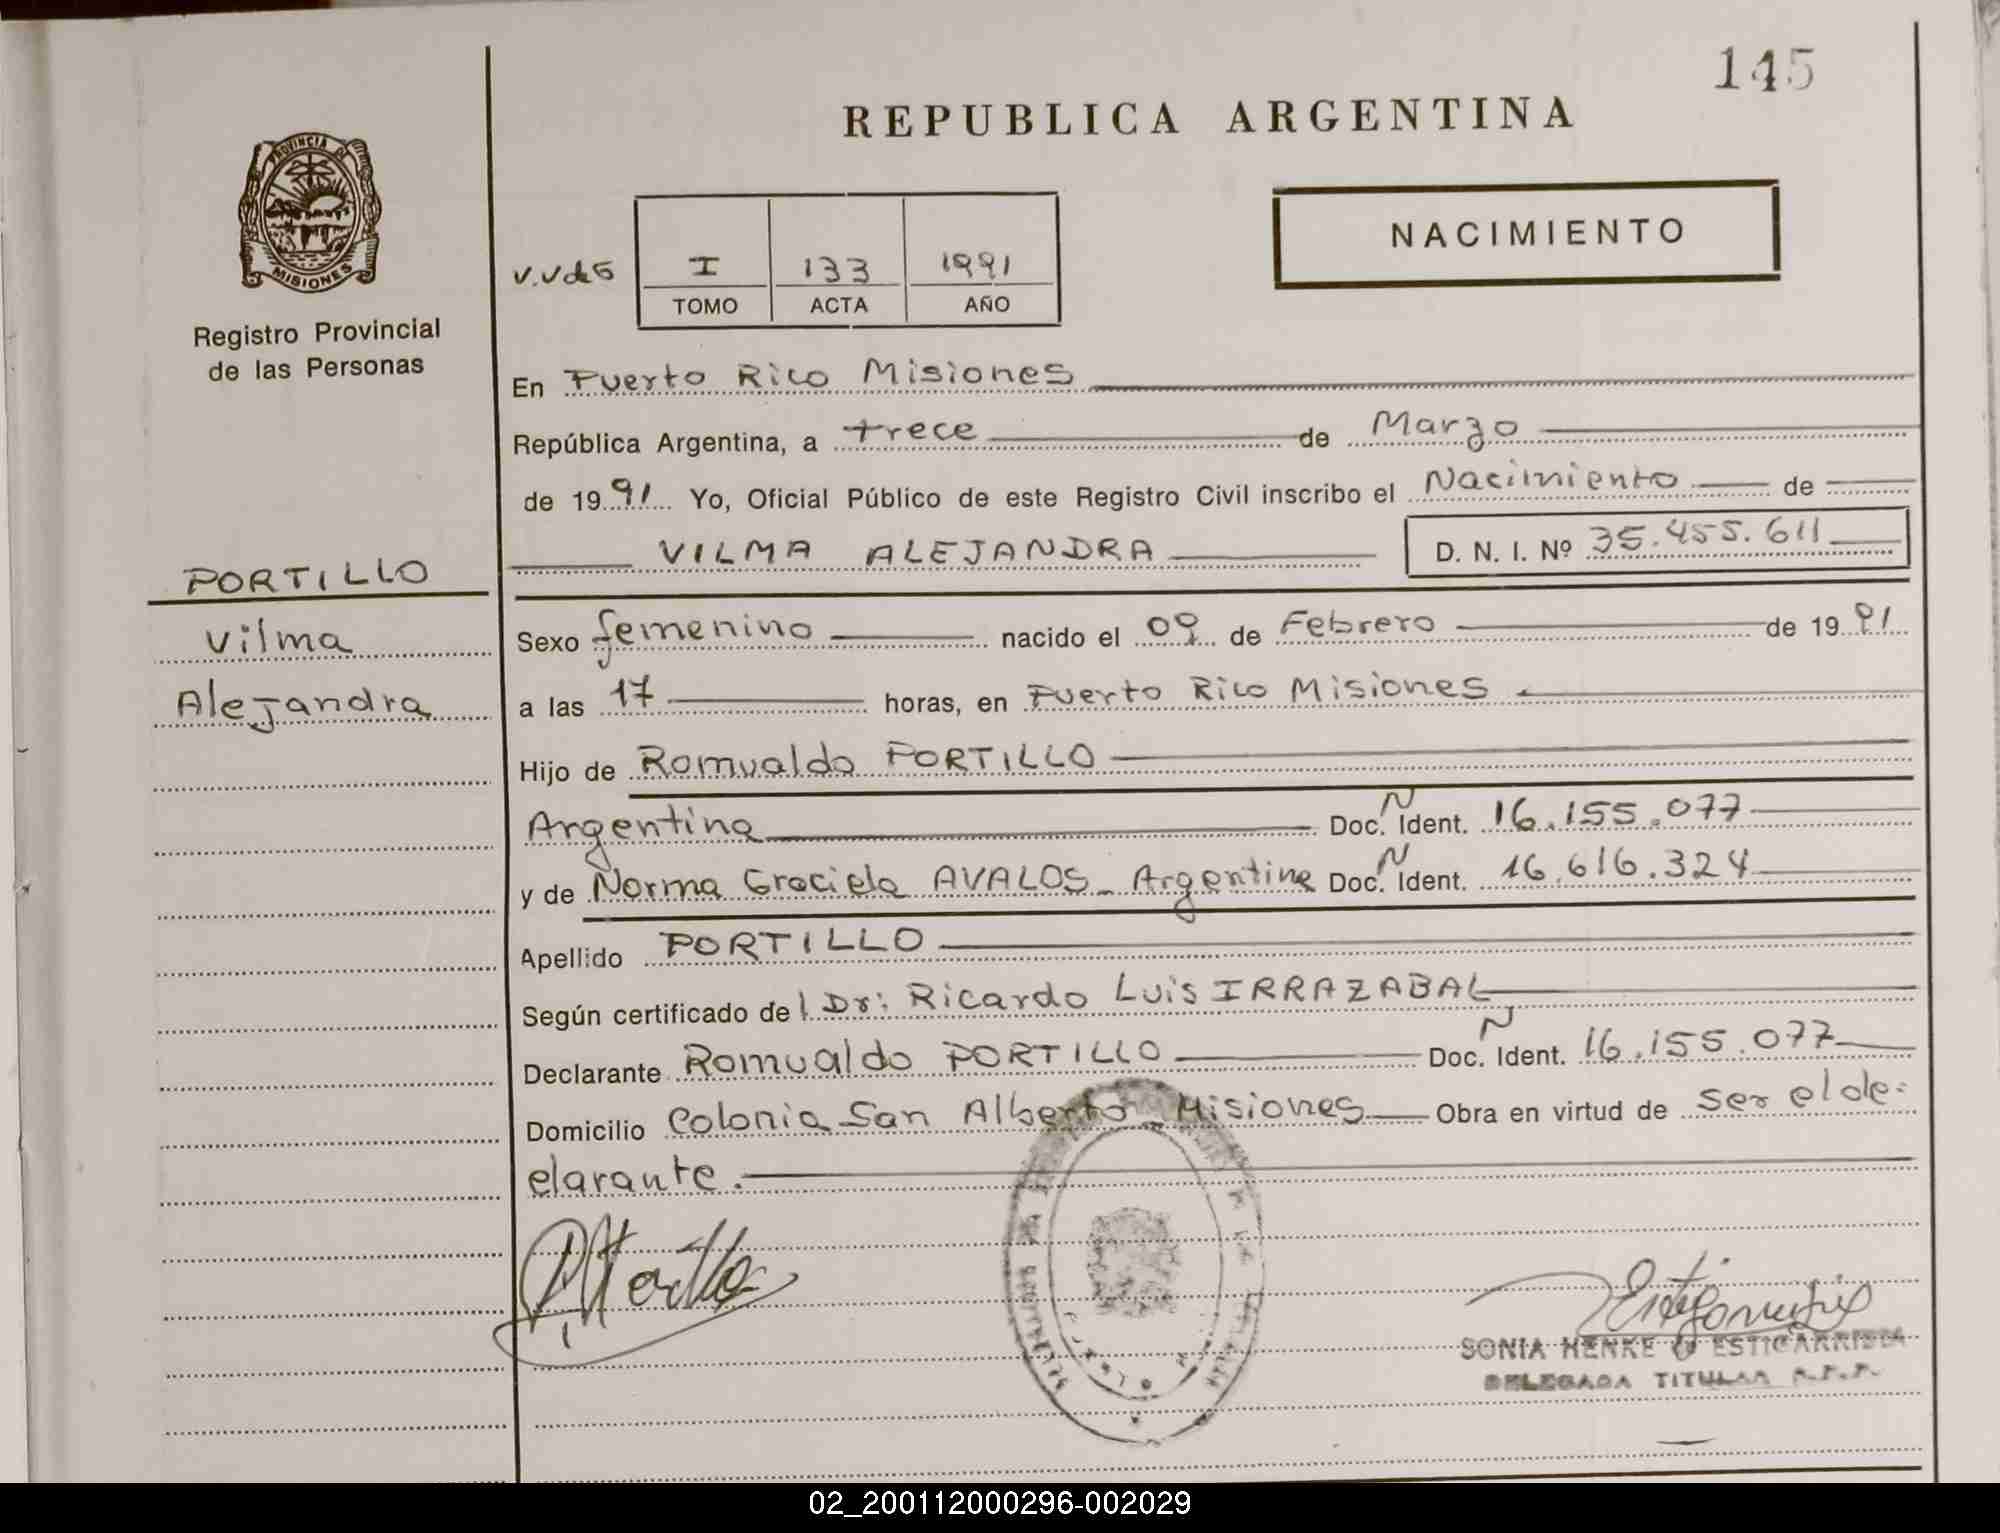 145
REPUBLICA ARGENTINA
PROVINCIA DE
MISIONES
Registro Provincial
de las Personas
V.V de G
I 133 1991
TOMO ACTA AÑO
NACIMIENTO
En Puerto Rico Misiones
República Argentina, a trece de Marzo
de 1991 Yo, Oficial Público de este Registro Civil inscribo el Nacimiento de
VILMA ALEJANDRA D. N. I. Nº 35.455.611
PORTILLO
Vilma
Alejandra
Sexo femenino nacido el 09 de Febrero de 1991
a las 17 horas, en Puerto Rico Misiones
Hijo de Romualdo PORTILLO
Argentina Doc. N Ident. 16.155.077
y de Norma Graciela AVALOS - Argentina Doc. N Ident. 16.616.324
Apellido PORTILLO
Según certificado del Dr: Ricardo Luis IRRAZABAL
Declarante Romualdo PORTILLO Doc. N Ident. 16.155.077
Domicilio Colonia San Alberto Misiones Obra en virtud de ser el de-
clarante.
SONIA HENKE de ESTIGARRIBIA
DELEGADA TITULAR R.P.P.
02_200112000296-002029